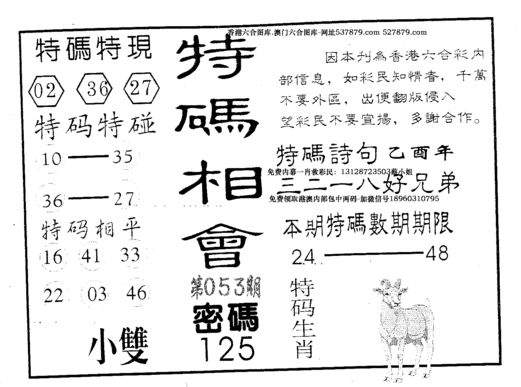 香港六合图库.澳门六合图库-网址537879.com 527879.com
特碼特現
02 36 27
特码特碰
10——35
36——27
特码相平
16 41 33
22 03 46
小雙
特碼相會
第053期
密碼
125
因本刊為香港六合彩内
部信息，如彩民知情者，千萬
不要外區，出便翻版侵入
望彩民不要宣揚，多謝合作。
特碼詩句 乙酉年
免费内幕一肖救彩民：13128723503蔡小姐
三二一八好兄弟
免费领取港澳内部包中两码-加微信号18960310795
本期特碼數期期限
24——48
特码生肖